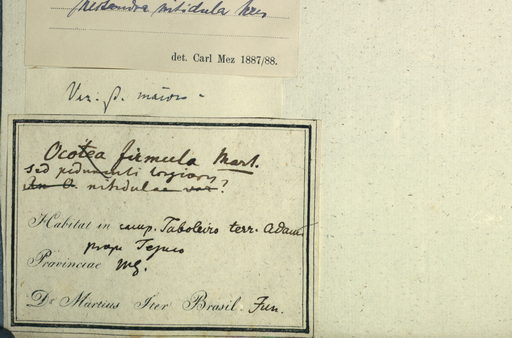 Nectandra nitidula Nees
det. Carl Mez 1887/88.
Var. β. maior -
Ocotea firmula Mart.
sed pedunculi longiores
An O. nitidulae var?
Habitat in camp. Taboleiro terr. Adam.
prope Tejuco
Provinciae MG.
Dr. Martius Iter Brasil. Jun.